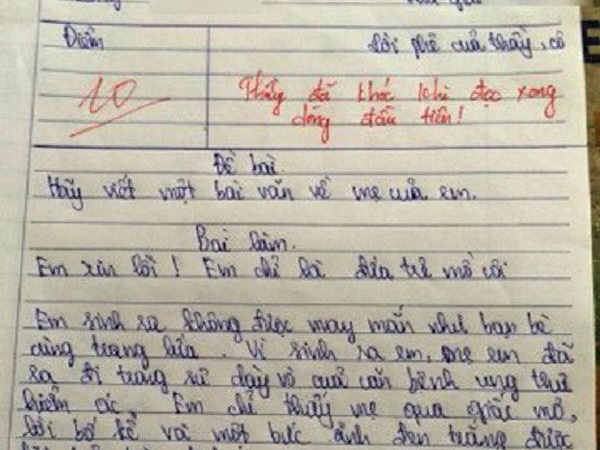 Điểm
Lời phê của thầy, cô
10
Thầy đã khóc khi đọc xong
dòng đầu tiên!
Đề bài.
Hãy viết một bài văn về mẹ của em.
Bài làm.
Em xin lỗi! Em chỉ là đứa trẻ mồ côi
Em sinh ra không được may mắn như bạn bè
cùng trang lứa. Vì sinh ra em, mẹ em đã
ra đi trong sự dày vò của căn bệnh ung thư
hiểm ác. Em chỉ thấy mẹ qua giấc mơ,
lời bố kể và một bức ảnh đen trắng được